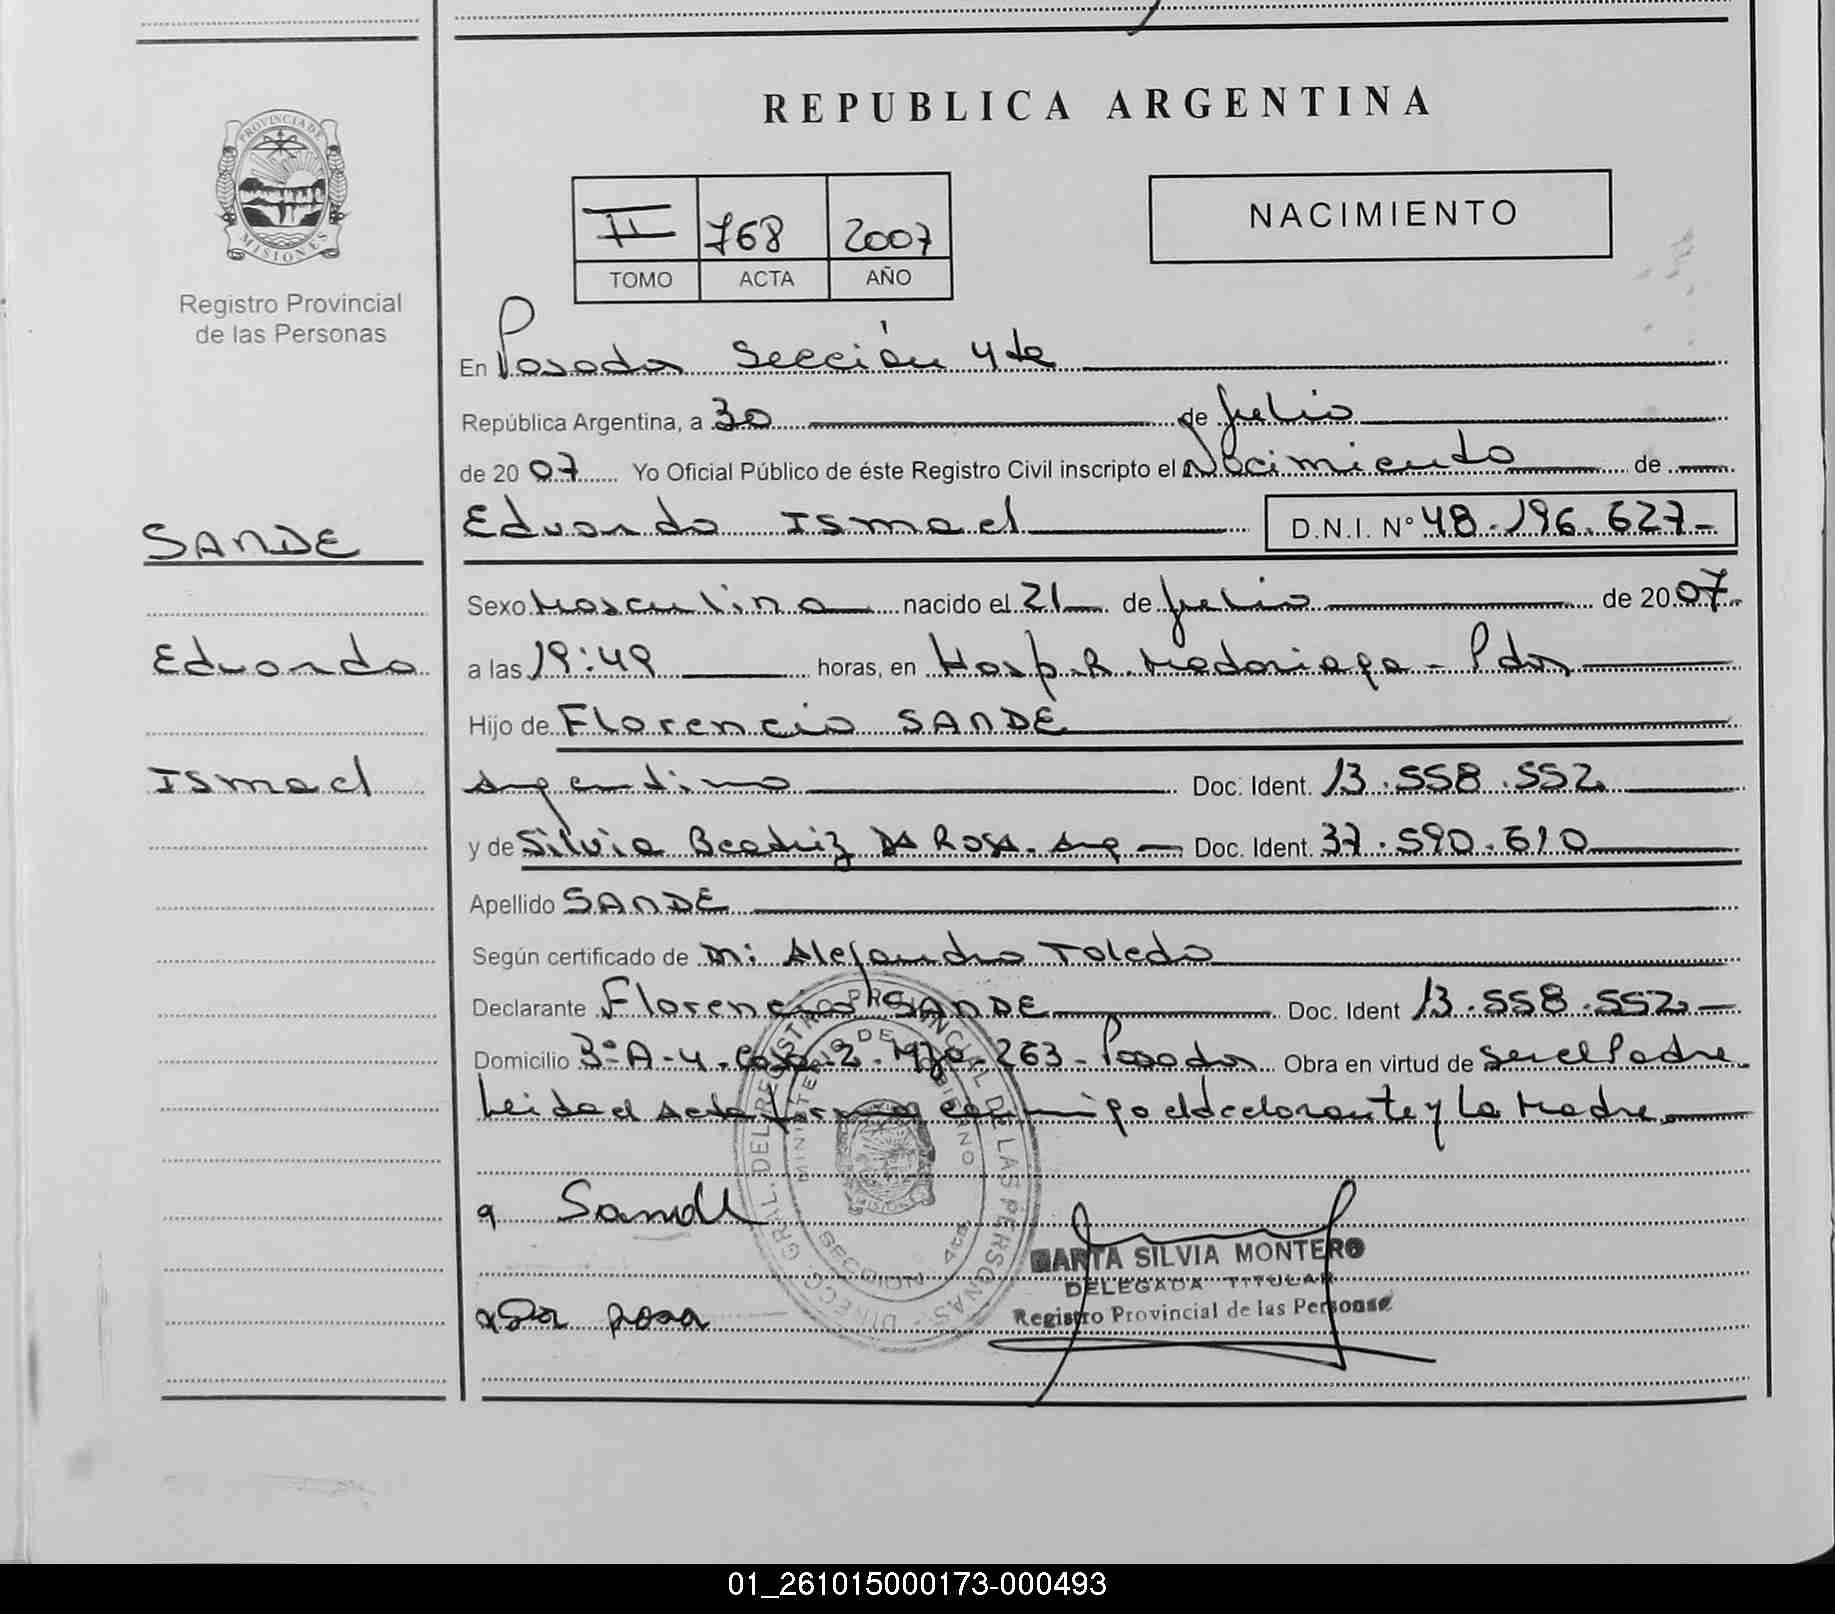 REPUBLICA ARGENTINA
PROVINCIA DE
MISIONES
Registro Provincial
de las Personas
II 768 2007
TOMO ACTA AÑO
NACIMIENTO
En Posadas Sección 4ta
República Argentina, a 30 de Julio
de 2007 Yo Oficial Público de éste Registro Civil inscripto el Nacimiento de
SANDE
Eduardo
Ismael
Eduardo Ismael D.N.I. Nº 48.196.627-
Sexo Masculino nacido el 21 de Julio de 2007
a las 19:49 horas, en Hosp. R. Madariaga - Pdas
Hijo de Florencio SANDE
Argentino Doc. Ident. 13.558.552
y de Silvia Beatriz DA ROSA. Arg - Doc. Ident. 37.590.610
Apellido SANDE
Según certificado de Alejandro Toledo
Declarante Florencio SANDE Doc. Ident 13.558.552
Domicilio 3º A-4-Casa-2-Mza-263-Posadas Obra en virtud de ser el Padre
Leida el Acta firman conmigo el declarante y la Madre
Sande
Da Rosa
DIRECC. GRAL. DEL REGISTRO PROVINCIAL DE LAS PERSONAS
MINISTERIO DE GOBIERNO
SECCION 4ta
MARTA SILVIA MONTERO
DELEGADA TITULAR
Registro Provincial de las Personas
01_261015000173-000493